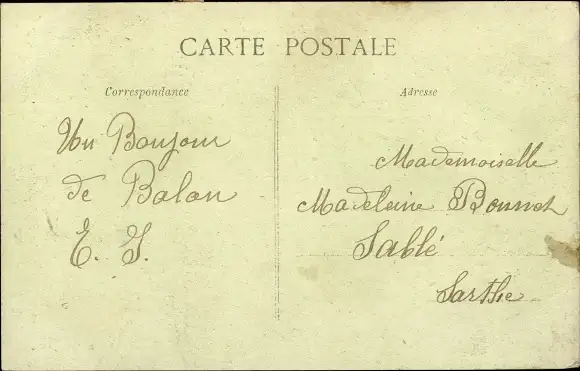 CARTE POSTALE
Correspondance
Un Bonjour
de Balon
E. J.
Adresse
Mademoiselle
Madeleine Bonnet
Sablé
Sarthe